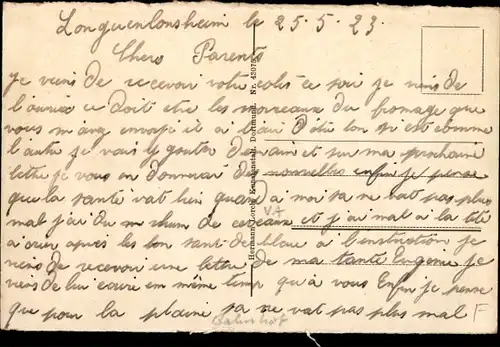 Longuenlonsheim le 25.5.23
Chers Parents
Je viens de recevoir votre colis ce soir je viens de
l'ouvrir ce doit etre les morceaux du fromage que
vous m avez envoyé il a l'air d'être bon si est comme
l'autre je vais y gouter demain et sur ma prochaine
lettre je vous en donnerai des nouvelles enfin je pense
que la santé vat bien quand a moi sa ne vat pas plus
mal j'ai du rhum de cerveaux et j'ai mal à la tête
après les bon de a l'instruction je
viens de recevoir une lettre de ma tante Eugenie je
viens de lui ecrire en même temp qu'à vous Enfin je pense
que pour la plaine sa ne vat pas plus mal F
Hermann Lorch, Kunstanstalt, Dortmund. Nr.